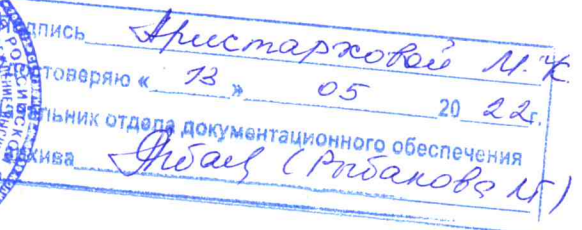 дпись Аристарховой М.К.
остоверяю «13» 05 2022г.
альник отдела документационного обеспечения
архива (Рыбакова МГ)